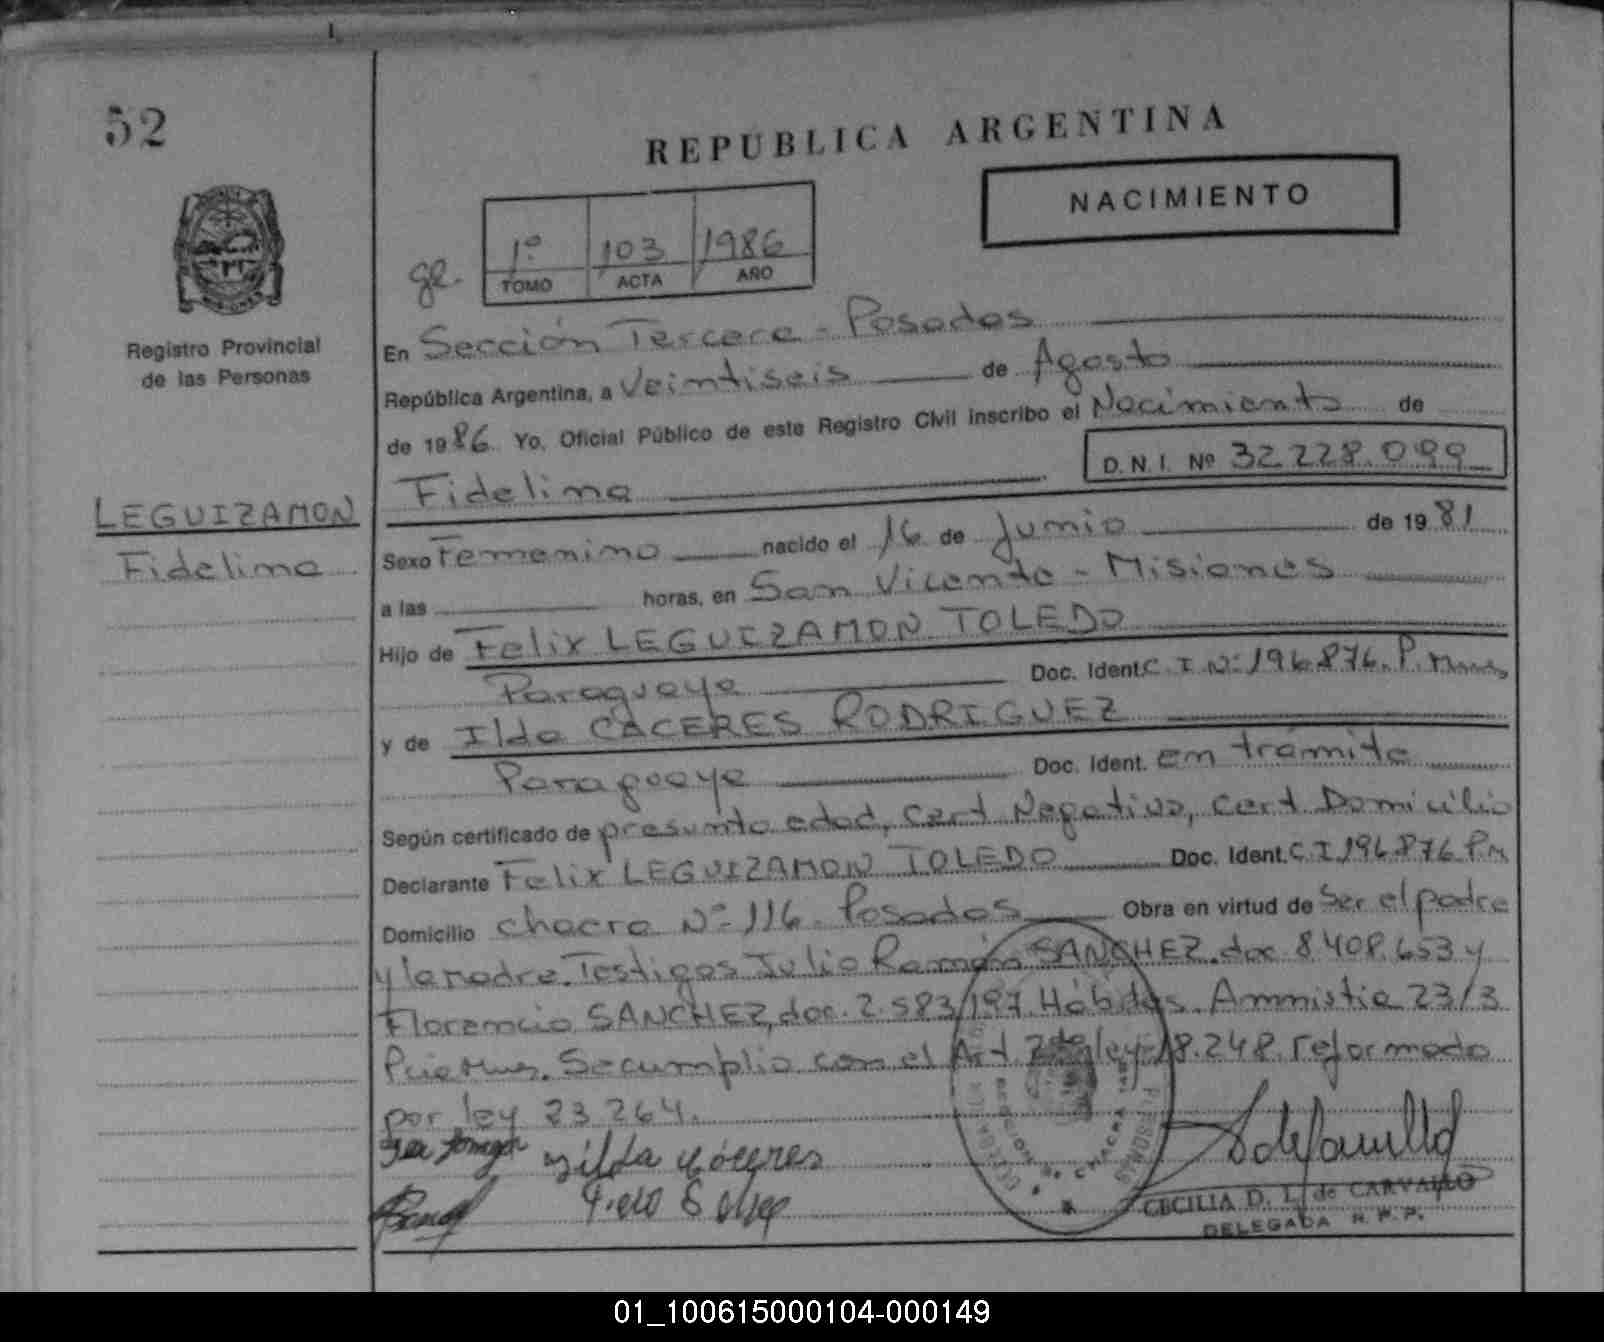 52
REPUBLICA ARGENTINA
NACIMIENTO
1º 103 1986
TOMO ACTA AÑO
Registro Provincial
de las Personas
LEGUIZAMON
Fidelina
En Sección Tercera - Posadas
República Argentina, a Veintiseis de Agosto
de 1986. Yo, Oficial Público de este Registro Civil inscribo el Nacimiento de
D.N.I. Nº 32.228.099
Fidelina
Sexo Femenino nacido el 16 de Junio de 1981
a las horas, en San Vicente - Misiones
Hijo de Felix LEGUIZAMON TOLEDO
Paraguaya Doc. Ident. C.I. Nº 196.876. P.
y de Ilda CACERES RODRIGUEZ
Paraguaya Doc. Ident. en trámite
Según certificado de presunta edad, Cert Negativo, Cert. Domicilio
Declarante Felix LEGUIZAMON TOLEDO Doc. Ident. C.I 196.876 P.M
Domicilio chacra Nº 116. Posadas Obra en virtud de Ser el padre
y la madre. Testigos Julio Ramón SANCHEZ. doc 8.408.653 y
Florencio SANCHEZ, doc. 2.583.197. Hábiles. Ammistia 23/3
Se cumplio con el Art 2 de ley 18.248. reformado
por ley 23.264.
CECILIA D. L. de CARVALLO
DELEGADA R.P.P.
01_100615000104-000149